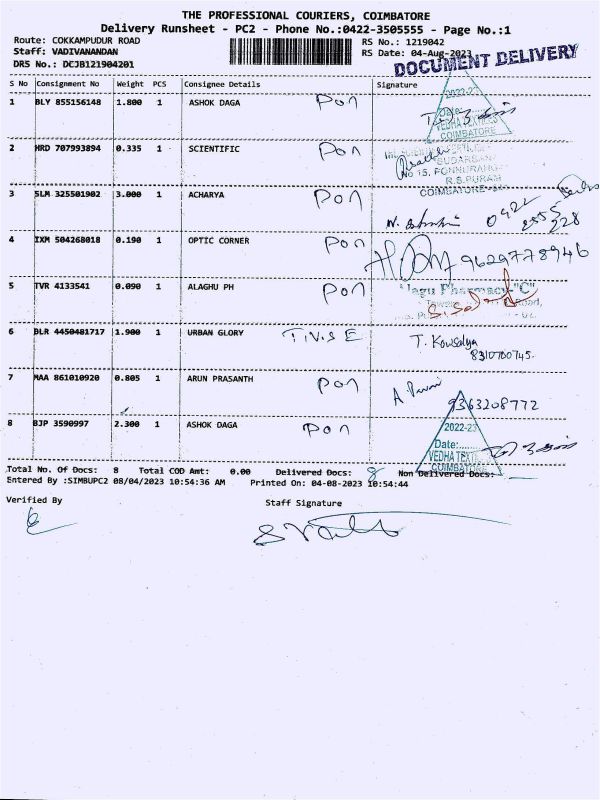 THE PROFESSIONAL COURIERS, COIMBATORE
Delivery Runsheet - PC2 - Phone No.:0422-3505555 - Page No.:1
Route: COKKAMPUDUR ROAD RS No.: 1219042
Staff: VADIVANANDAN RS Date: 04-Aug-2023
DRS No.: DCJB121904201 DOCUMENT DELIVERY
S No Consignment No Weight PCS Consignee Details Signature
1 BLY 855156148 1.800 1 ASHOK DAGA Pon
2022-23
Date:
VEDHA TEXTILES
COIMBATORE
2 HRD 707993894 0.335 1 SCIENTIFIC Pon
No 15, PONNURANG
R.S.PURAM
COIMBATORE
3 SLM 325501902 3.000 1 ACHARYA Pon
0422
4 IXM 504268018 0.190 1 OPTIC CORNER Pon 9629778946
5 TVR 4133541 0.090 1 ALAGHU PH Pon
Pharmacy-"C"
Road,
6 BLR 4450481717 1.900 1 URBAN GLORY T. Kowsalya
8310760745.
7 MAA 861010920 0.805 1 ARUN PRASANTH Pon
9363208772
8 BJP 3590997 2.300 1 ASHOK DAGA Pon
2022-23
Date:
VEDHA TEXTILES
COIMBATORE
Total No. Of Docs: 8 Total COD Amt: 0.00 Delivered Docs: 8 Non Delivered Docs:
Entered By :SIMBUPC2 08/04/2023 10:54:36 AM Printed On: 04-08-2023 10:54:44
Verified By Staff Signature